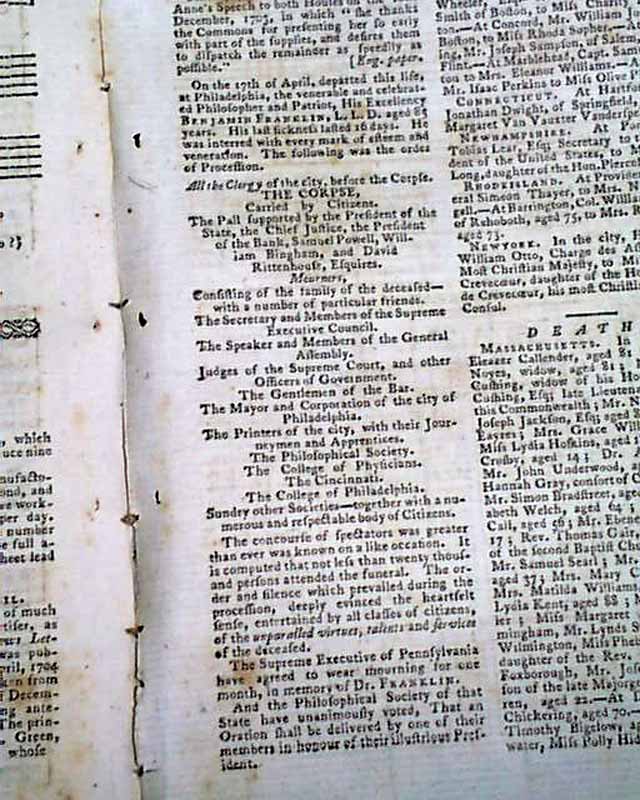 Anne's Speech to both Houses on the
December, 1703, in which "she thanks
the Commons for presenting her so early
with part of the supplies, and desires them
to dispatch the remainder as speedily as
possible."
[Eng. paper.
On the 17th of April, departed this life,
at Philadelphia, the venerable and celebrat-
ed Philosopher and Patriot, His Excellency
BENJAMIN FRANKLIN, L. L. D. aged 85
years. His last sickness lasted 16 days. He
was interred with every mark of esteem and
veneration. The following was the order
of Procession.
All the Clergy of the city, before the Corpse.
THE CORPSE,
Carried by Citizens.
The Pall supported by the President of the
State, the Chief Justice, the President
of the Bank, Samuel Powell, Will-
iam Bingham, and David
Rittenhouse, Esquires.
Mourners,
Consisting of the family of the deceased—
with a number of particular friends.
The Secretary and Members of the Supreme
Executive Council.
The Speaker and Members of the General
Assembly.
Judges of the Supreme Court, and other
Officers of Government.
The Gentlemen of the Bar.
The Mayor and Corporation of the city of
Philadelphia.
The Printers of the city, with their Jour-
neymen and Apprentices.
The Philosophical Society.
The College of Physicians.
The Cincinnati.
The College of Philadelphia.
Sundry other Societies—together with a nu-
merous and respectable body of Citizens.
The concourse of spectators was greater
than ever was known on a like occasion. It
is computed that not less than twenty thous-
and persons attended the funeral. The or-
der and silence which prevailed during the
procession, deeply evinced the heartfelt
sense, entertained by all classes of citizens,
of the unparalled virtues, talents and services
of the deceased.
The Supreme Executive of Pennsylvania
have agreed to wear mourning for one
month, in memory of Dr. FRANKLIN.
And the Philosophical Society of that
State have unanimously voted, That an
Oration shall be delivered by one of their
members in honour of their illustrious Pres-
ident.
Wheeler, Esq.
Smith of Boston, to Miss Charity
ton.—At Concord, Mr. William
Boston, to Miss Rhoda
ing, Mr. Joseph Sampson, of Salem,
—At Marblehead, Capt. Sam
ton to Mrs. Eleanor Williams.—A
Mr. Isaac Perkins to Miss Olive
CONNECTICUT. At Hartfo
Jonathan Dwight, of Springfield,
Margaret Van Vauxter
NEWHAMPSHIRE. At Po
Tobias Lear, Esq; Secretary to
dent of the United States, to M
Long, daughter of the Hon.
RHODEISLAND. At Provide
eral Simeon Thayer, to Mrs. N
gell.—At Barrington, Col. William
of Rehoboth, aged 75, to Mrs. R
aged 73.
NEWYORK. In the city, H
William Otto, Charge des Af
Most Christian Majesty, to Mi
Crevecœur, daughter of the H
de Crevecœur, his most Christia
Consul.
DEATH
MASSACHUSETTS. In
Eleazer Callender, aged 81
Noyes, widow, aged 81;
Cushing, widow of his Ho
Cushing, Esq; late Lieuten
this Commonwealth; Mr. N
Joseph Jackson, Esq; aged
Eayres; Mrs. Grace Will
Miss Lydia Hoskins, aged
Crosby, aged 14; Dr. A
Mr. John Underwood,
Hannah Gray, consort of
Mr. Simon Bradstreet, aged
abeth Welch, aged 64;
Call, aged 56; Mr. Ebene
17; Rev. Thomas Gair,
of the second Baptist Ch
Mr. Samuel Searl; Mr.
aged 37; Mrs. Mary C
Mrs. Matilda William
Lydia Kent, aged 88;
ler; Miss Margaret
mingham, Mr. Lynds S
Wilmington, Miss Phe
daughter of the Rev.
Foxborough, Mr. John
son of the late Major
ren, aged 22.—At
Chickering, aged 70.—
Timothy Bigelow,
water, Miss Polly Hid
, which
uce nine
ond, and
work-
per day.
number
be full a-
sheet lead
of much
Let-
was pub-
pril, 1704
ken from
Decem-
ng ante-
The prin-
. Green,
whose